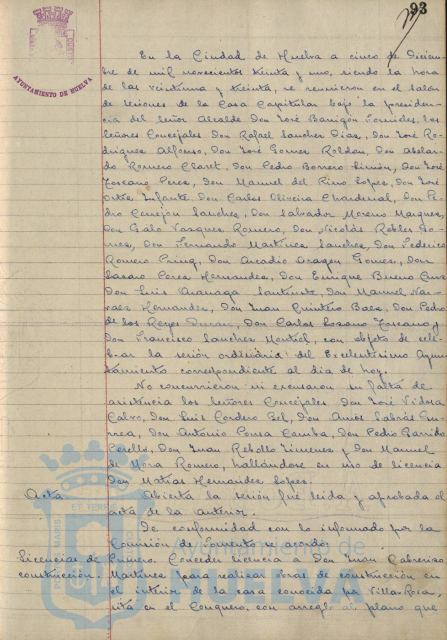 93
AYUNTAMIENTO DE HUELVA
En la Ciudad de Huelva a cinco de Diciem-
bre de mil novecientos treinta y uno, siendo la hora
de las veintiuna y treinta, se reunieron en el salon
de sesiones de la Casa Capitular bajo la presiden-
cia del Señor Alcalde Don José Barrigón Fornieles, los
Señores Concejales Don Rafael Sanchez Diaz, Don José Ro-
driguez Alfonso, Don José Gomez Roldan, Don Abelar-
do Romero Claret, Don Pedro Borrero Limón, Don José
Toscano Perez, Don Manuel del Pino Lopez, Don José
Ortiz Infante, Don Carlos Oliveira Chardenal, Don Pe-
dro Cerrejon Sanchez, Don Salvador Moreno Marquez,
Don Galo Vazquez Romero, Don Nicolás Robles Go-
mez, Don Fernando Martinez Sanchez, Don Federico
Romero Don Arcadio Aragon Gomez, Don
Lazaro Perea Hernandez, Don Enrique Bueno Cruz
Don Luis Don Manuel Nar-
vaez Hernandez, Don Juan Quintero Baez, Don Pedro
de los Reyes Duran, Don Carlos Lozano Toscano y
Don Francisco Sanchez Montiel, con objeto de cele-
brar la sesión ordinaria del Excelentisimo Ayun-
tamiento correspondiente al dia de hoy.
No concurrieron ni excusaron su falta de
asistencia los Señores Concejales Don José Vidosa
Calvo, Don Luis Cordero Bel, Don Amos Sabrás Gu-
rrea, Don Antonio Pousa Camba, Don Pedro Garrido
Perelló, Don Juan Rebollo Jimenez y Don Manuel
de Mora Romero, hallándose en uso de licencia
Don Matias Hernandez Lopez.
Acta Abierta la sesión fué leida y aprobada el
acta de la anterior.
De conformidad con lo informado por la
Comisión de Fomento se acordó:
Licencias de Primero. Conceder licencia a Don Juan
construcción. Martinez para realizar obras de construcción en
el interior de la casa conocida por Villa Rosa,
sita en el Conquero, con arreglo al plano que
Ayuntamiento de
HUELVA